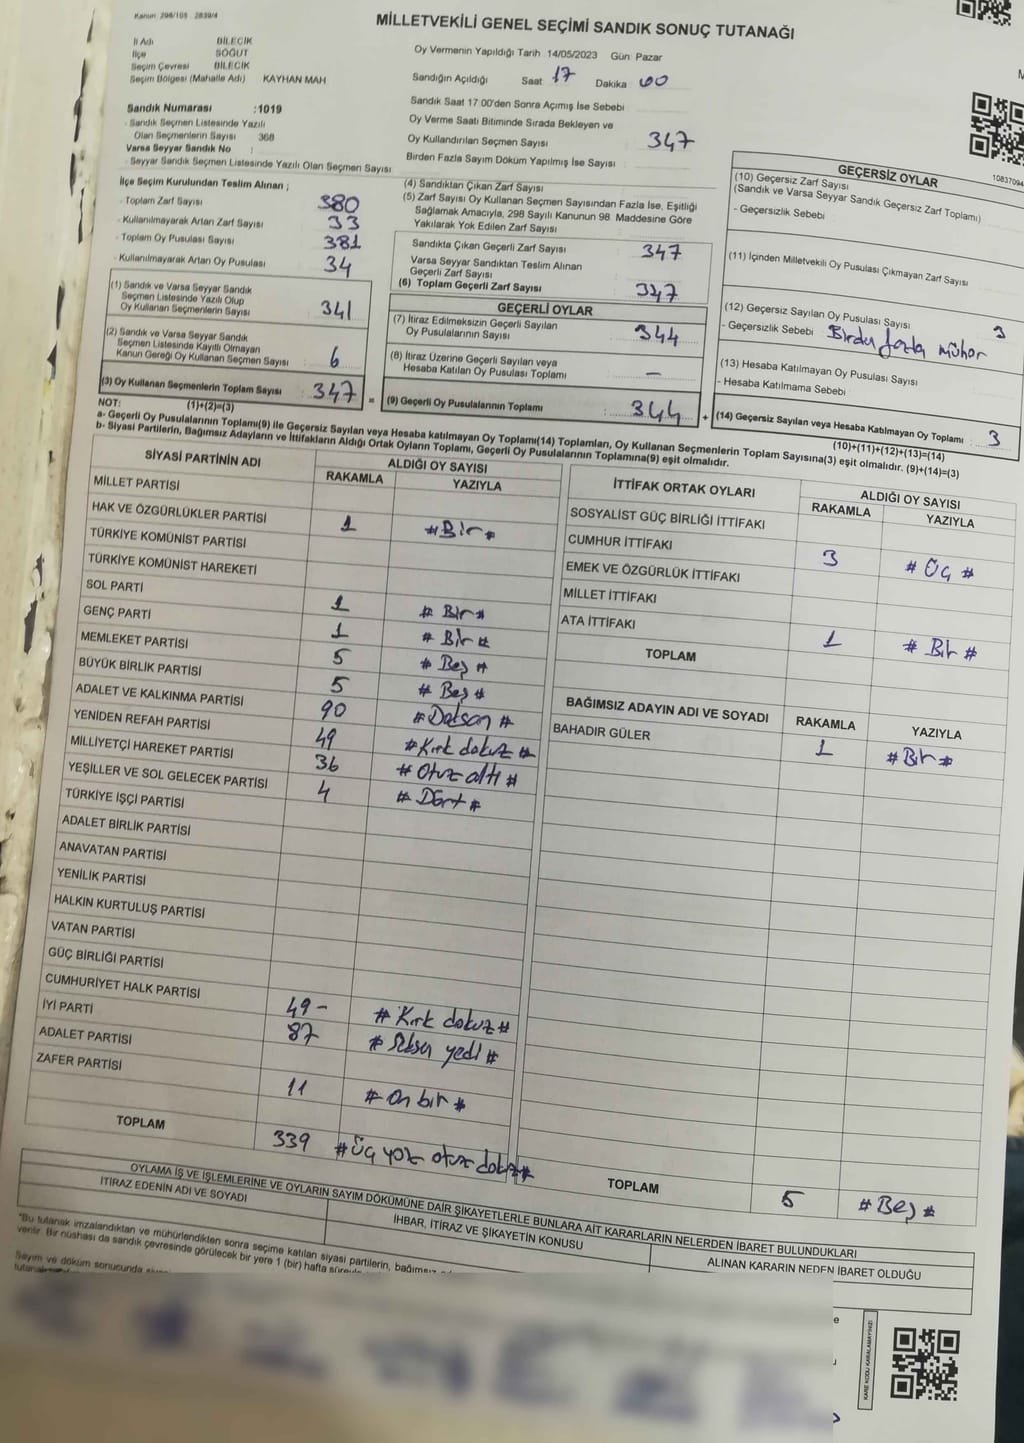 Kanun 298/105 2839/4
MİLLETVEKİLİ GENEL SEÇİMİ SANDIK SONUÇ TUTANAĞI
İl Adı BİLECİK
İlçe SÖĞÜT
Seçim Çevresi BİLECİK
Seçim Bölgesi (Mahalle Adı) KAYHAN MAH
Sandık Numarası :1019
Sandık Seçmen Listesinde Yazılı
Olan Seçmenlerin Sayısı 368
Varsa Seyyar Sandık No :
Seyyar Sandık Seçmen Listesinde Yazılı Olan Seçmen Sayısı
Oy Vermenin Yapıldığı Tarih 14/05/2023 Gün Pazar
Sandığın Açıldığı Saat 17 Dakika 00
Sandık Saat 17.00'den Sonra Açmış İse Sebebi
Oy Verme Saati Bitiminde Sırada Bekleyen ve
Oy Kullandırılan Seçmen Sayısı 347
Birden Fazla Sayım Döküm Yapılmış İse Sayısı
İlçe Seçim Kurulundan Teslim Alınan ;
- Toplam Zarf Sayısı 380
- Kullanılmayarak Artan Zarf Sayısı 33
- Toplam Oy Pusulası Sayısı 381
- Kullanılmayarak Artan Oy Pusulası 34
(1) Sandık ve Varsa Seyyar Sandık
Seçmen Listesinde Yazılı Olup
Oy Kullanan Seçmenlerin Sayısı 341
(2) Sandık ve Varsa Seyyar Sandık
Seçmen Listesinde Kayıtlı Olmayan
Kanun Gereği Oy Kullanan Seçmen Sayısı : 6
(3) Oy Kullanan Seçmenlerin Toplam Sayısı : 347 =
(4) Sandıktan Çıkan Zarf Sayısı
(5) Zarf Sayısı Oy Kullanan Seçmen Sayısından Fazla İse, Eşitliği
Sağlamak Amacıyla, 298 Sayılı Kanunun 98. Maddesine Göre
Yakılarak Yok Edilen Zarf Sayısı
Sandıkta Çıkan Geçerli Zarf Sayısı 347
Varsa Seyyar Sandıktan Teslim Alınan
Geçerli Zarf Sayısı
(6) Toplam Geçerli Zarf Sayısı 347
GEÇERLİ OYLAR
(7) İtiraz Edilmeksizin Geçerli Sayılan
Oy Pusulalarının Sayısı 344
(8) İtiraz Üzerine Geçerli Sayılan veya
Hesaba Katılan Oy Pusulası Toplamı —
(9) Geçerli Oy Pusulalarının Toplamı : 344 +
GEÇERSİZ OYLAR
(10) Geçersiz Zarf Sayısı
(Sandık ve Varsa Seyyar Sandık Geçersiz Zarf Toplamı)
- Geçersizlik Sebebi
10837094
(11) İçinden Milletvekili Oy Pusulası Çıkmayan Zarf Sayısı
(12) Geçersiz Sayılan Oy Pusulası Sayısı 3
- Geçersizlik Sebebi Birden fazla mühür
(13) Hesaba Katılmayan Oy Pusulası Sayısı
- Hesaba Katılmama Sebebi
(14) Geçersiz Sayılan veya Hesaba Katılmayan Oy Toplamı : 3
(10)+(11)+(12)+(13)=(14)
NOT: (1)+(2)=(3)
a- Geçerli Oy Pusulalarının Toplamı(9) ile Geçersiz Sayılan veya Hesaba katılmayan Oy Toplamı(14) Toplamları, Oy Kullanan Seçmenlerin Toplam Sayısına(3) eşit olmalıdır. (9)+(14)=(3)
b- Siyasi Partilerin, Bağımsız Adayların ve İttifakların Aldığı Ortak Oyların Toplamı, Geçerli Oy Pusulalarının Toplamına(9) eşit olmalıdır.
SİYASİ PARTİNİN ADI ALDIĞI OY SAYISI
RAKAMLA YAZIYLA
MİLLET PARTİSİ
HAK VE ÖZGÜRLÜKLER PARTİSİ 1 #Bir#
TÜRKİYE KOMÜNİST PARTİSİ
TÜRKİYE KOMÜNİST HAREKETİ
SOL PARTİ 1 # Bir#
GENÇ PARTİ 1 # Bir #
MEMLEKET PARTİSİ 5 # Beş #
BÜYÜK BİRLİK PARTİSİ 5 # Beş #
ADALET VE KALKINMA PARTİSİ 90 #Doksan #
YENİDEN REFAH PARTİSİ 49 #Kırk dokuz #
MİLLİYETÇİ HAREKET PARTİSİ 36 # Otuz altı #
YEŞİLLER VE SOL GELECEK PARTİSİ 4 # Dört #
TÜRKİYE İŞÇİ PARTİSİ
ADALET BİRLİK PARTİSİ
ANAVATAN PARTİSİ
YENİLİK PARTİSİ
HALKIN KURTULUŞ PARTİSİ
VATAN PARTİSİ
GÜÇ BİRLİĞİ PARTİSİ
CUMHURİYET HALK PARTİSİ 49- # Kırk dokuz #
İYİ PARTİ 87 # Seksen yedi #
ADALET PARTİSİ
ZAFER PARTİSİ 11 # On bir #
TOPLAM 339 #Üç yüz otuz dokuz#
İTTİFAK ORTAK OYLARI ALDIĞI OY SAYISI
RAKAMLA YAZIYLA
SOSYALİST GÜÇ BİRLİĞİ İTTİFAKI
CUMHUR İTTİFAKI 3 # Üç #
EMEK VE ÖZGÜRLÜK İTTİFAKI
MİLLET İTTİFAKI
ATA İTTİFAKI 1 # Bir #
TOPLAM
BAĞIMSIZ ADAYIN ADI VE SOYADI RAKAMLA YAZIYLA
BAHADIR GÜLER 1 #Bir#
TOPLAM 5 # Beş #
OYLAMA İŞ VE İŞLEMLERİNE VE OYLARIN SAYIM DÖKÜMÜNE DAİR ŞİKAYETLERLE BUNLARA AİT KARARLARIN NELERDEN İBARET BULUNDUKLARI
İTİRAZ EDENİN ADI VE SOYADI İHBAR, İTİRAZ VE ŞİKAYETİN KONUSU ALINAN KARARIN NEDEN İBARET OLDUĞU
"Bu tutanak imzalandıktan ve mühürlendikten sonra seçime katılan siyasi partilerin, bağımsız
verilir. Bir nüshası da sandık çevresinde görülecek bir yere 1 (bir) hafta
Sayım ve döküm sonucunda
KARE KODU KARALAMAYINIZ!